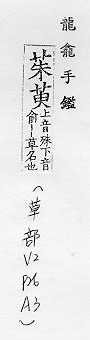 龍龕手鑑
茱萸上音殊下音
俞二草名也
(草部
V2
P26
A3)